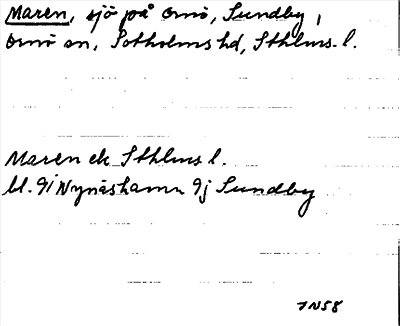 Maren, sjö på Ornö, Sundby,
Ornö sn, Sotholms hd, Sthlms l.
Maren ek Sthlms l.
bl. 9i Nynäshamn 9j Sundby
JN58